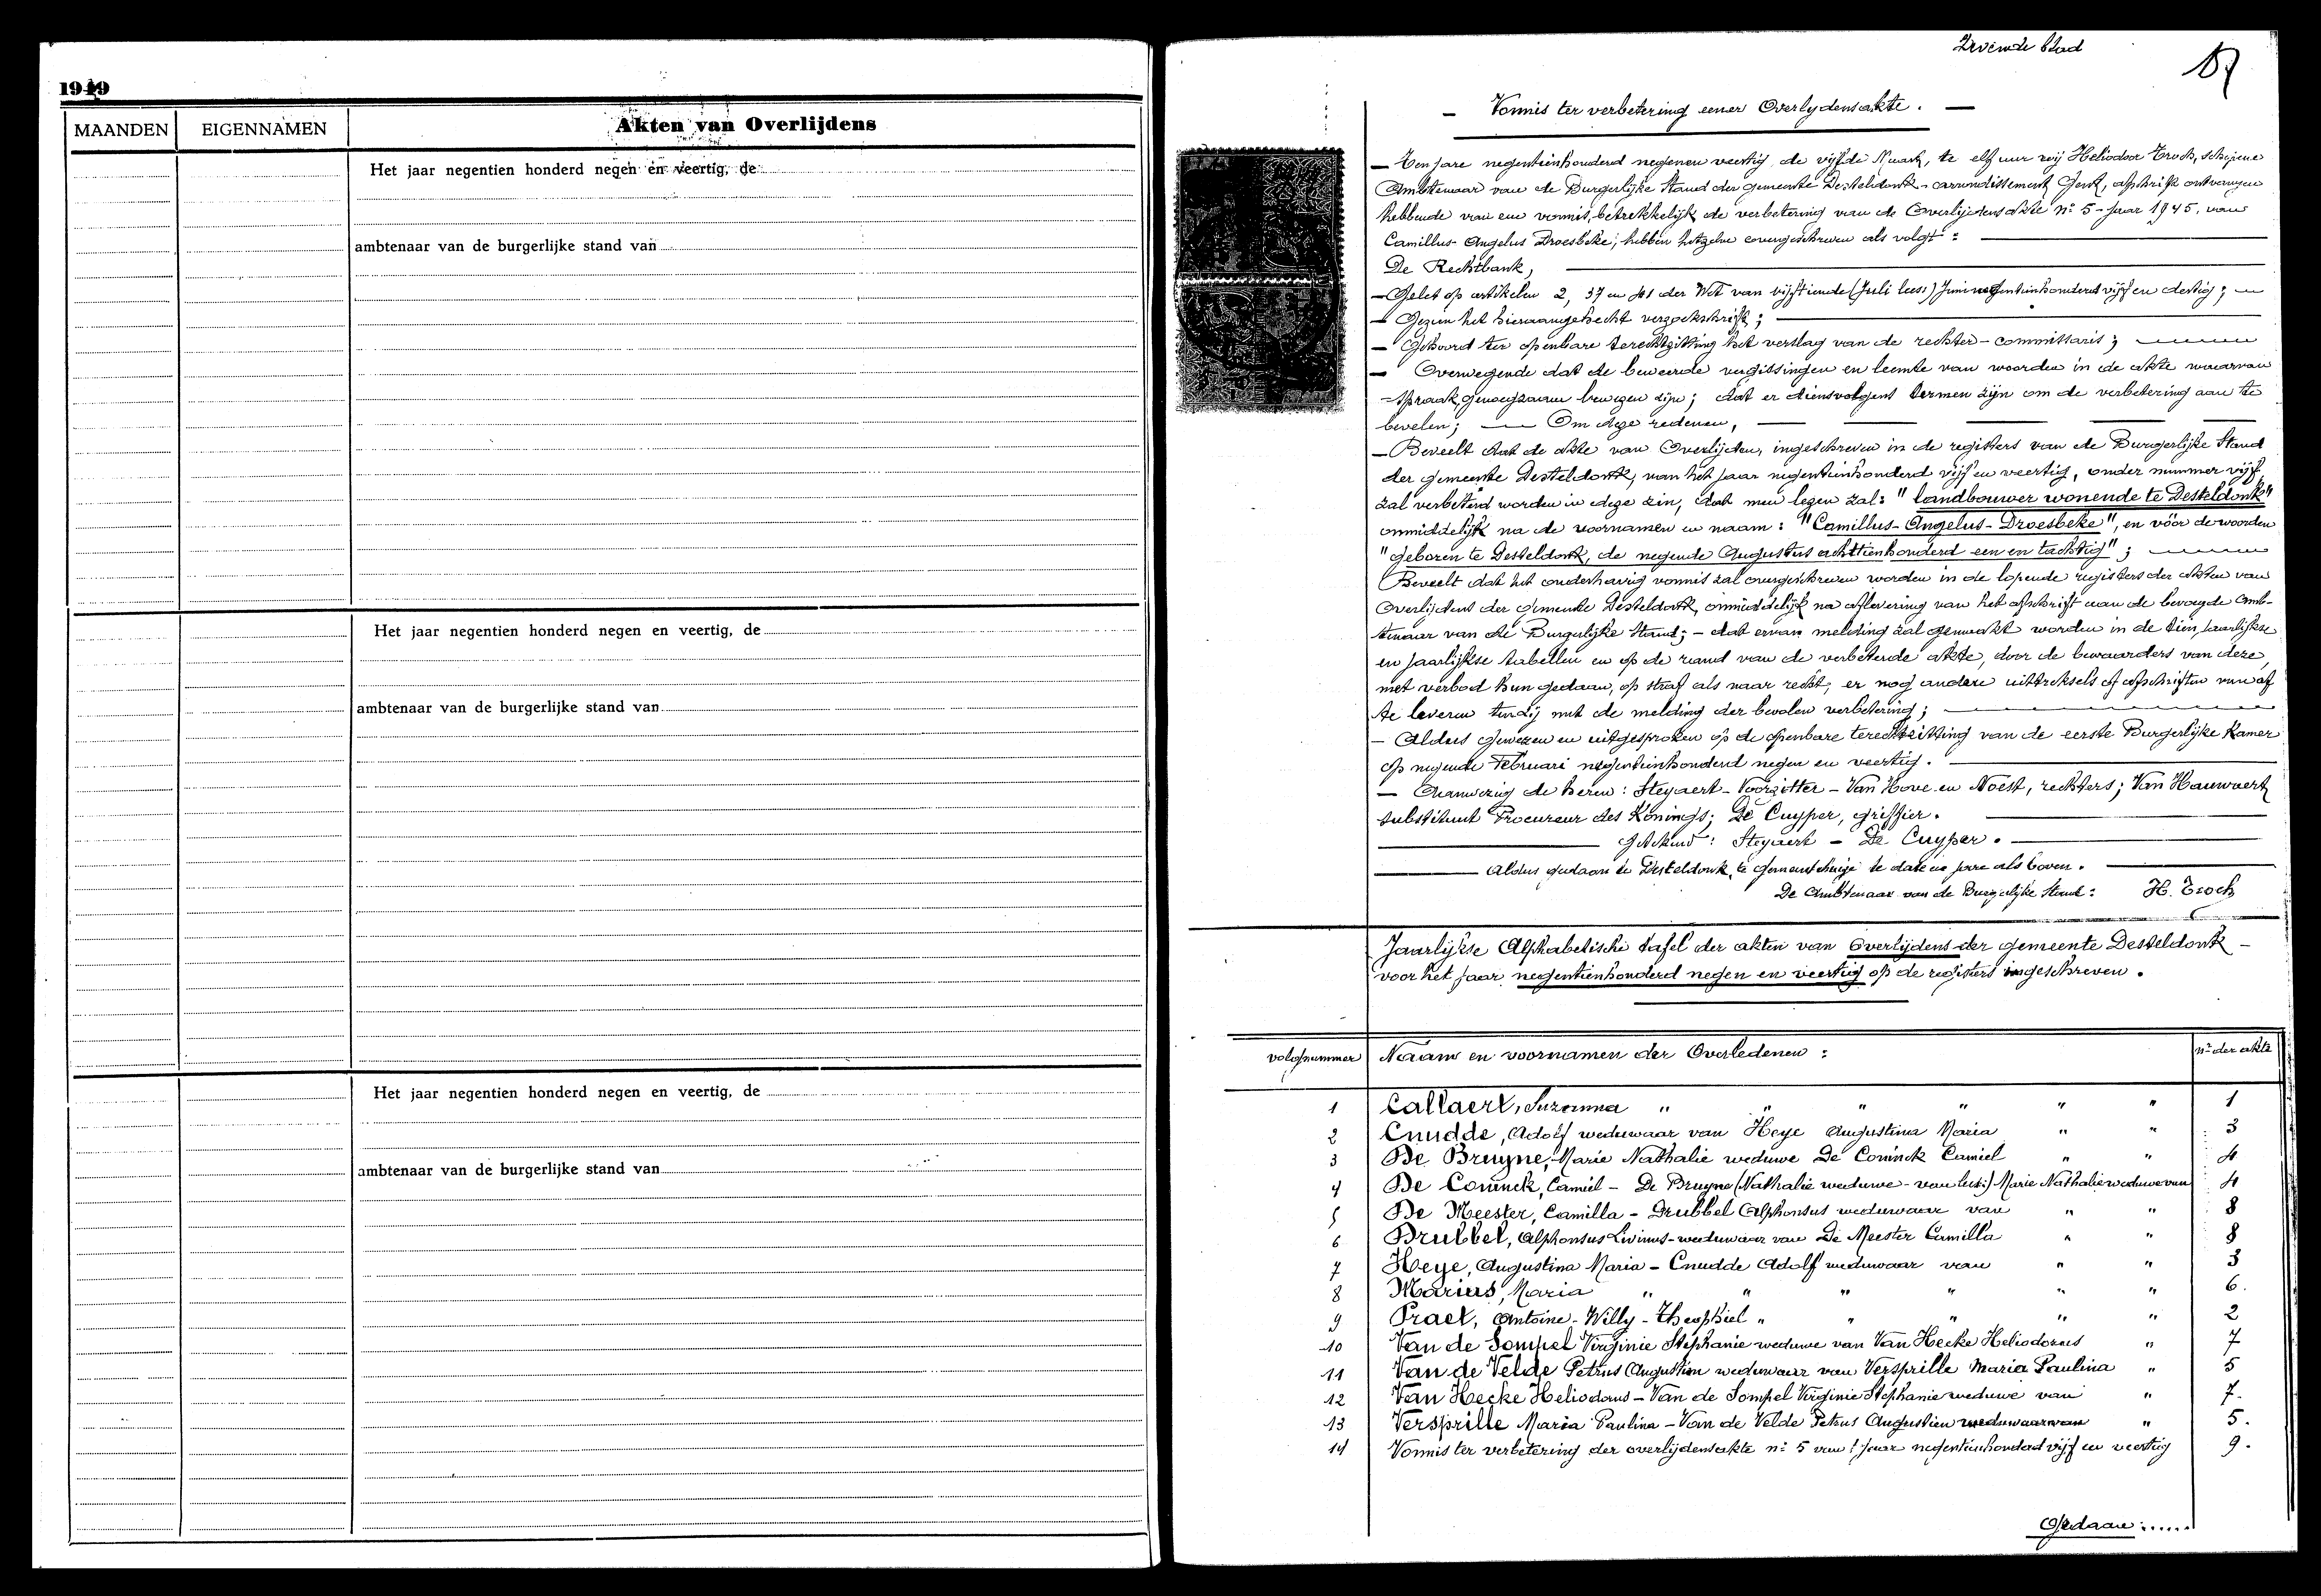 1949
MAANDEN EIGENNAMEN Akten van Overlijdens
Het jaar negentien honderd negen en veertig, de
ambtenaar van de burgerlijke stand van
Het jaar negentien honderd negen en veertig, de
ambtenaar van de burgerlijke stand van
Het jaar negentien honderd negen en veertig, de
ambtenaar van de burgerlijke stand van
blad
- Vonnis ter verbetering eener Overlydensakte. -
- Ten jare negentienhonderd negenen veertig, de vijfde Maart, te elf uur wij Heliodoor Troch, schepene
Ambtenaar van de Burgerlijke Stand der gemeente Desteldonk, arrondissement Gent, afschrift ontvangen
hebbende van een vonnis, betrekkelijk de verbetering van de Overlijdensakte n° 5 - Jaar 1945, van
Camillus-Angelus Droesbeke; hebben hetzelve overgeschreven als volgt:
De Rechtbank,
- Gelet op artikelen 2, 37 en 41 der Wet van vijftiende (Juli lees:) Juni negentienhonderd vijf en dertig;
- Gezien het hieraangehecht verzoekschrift;
- Gehoord ter openbare terechtzitting het verslag van de rechter-commissaris;
- Overwegende dat de beweerde vergissingen en leemte van woorden in de akte waarvan
spraak, genoegzaam bewezen zijn; dat er diensvolgens termen zijn om de verbetering aan te
bevelen; - Om deze redenen,
- Beveelt dat de akte van Overlijden, ingeschreven in de registers van de Burgerlijke Stand
der gemeente Desteldonk, van het jaar negentienhonderd vijf en veertig, onder nummer vijf
zal verbeterd worden in deze zin, dat men lezen zal: "landbouwer wonende te Desteldonk"
onmiddelijk na de voornamen en naam: "Camillus-Angelus-Droesbeke", en vóór de woorden
"geboren te Desteldonk, de negende Augustus achttienhonderd een en tachtig";
Beveelt dat het onderhavig vonnis zal overgeschreven worden in de lopende registers der akten van
Overlijdens der gemeente Desteldonk, onmiddelijk na aflevering van het afschrift aan de bevoegde amb-
tenaar van de Burgerlijke Stand; - dat ervan melding zal gemaakt worden in de tien, Jaarlijkse
en Jaarlijkse tabellen en op de rand van de verbeterde akte, door de bewaarders van deze,
met verbod hun gedaan, op straf als naar recht, er nog andere uittreksels of afschriften van af
te leveren tenzij met de melding der bevolen verbetering;
- Aldus gewezen en uitgesproken op de openbare terechtzitting van de eerste Burgerlijke Kamer
op negende Februari negentienhonderd negen en veertig.
- Aanwezig de heren: Steyaert - Voorzitter - Van Hove en Noest, rechters; Van Hauwaert
substituut Procureur des Konings; De Cuyper, griffier.
Getekend: Steyaert - De Cuyper.
Aldus gedaan te Desteldonk, te gemeentehuize te date en jare als boven.
De Ambtenaar van de Burgerlijke Stand: H. Troch
Jaarlijkse Alphabetische tafel der akten van Overlijdens der gemeente Desteldonk -
voor het jaar negentienhonderd negen en veertig op de registers ingeschreven.
volgnummer Naam en voornamen der Overledenen: n° der akte
1 Callaert, Suzanna " " " " " " 1
2 Cnudde, Adolf weduwaar van Heye Augustina Maria " " 3
3 De Bruyne, Marie Nathalie weduwe De Coninck Camiel " " 4
4 De Coninck, Camiel - De Bruyne (Nathalie weduwe - van lees:) Marie Nathalie weduwe van 4
5 De Meester, Camilla - Drubbel Alphonsus weduwaar van " " 8
6 Drubbel, Alphonsus Livinus - weduwaar van De Meester Camilla " " 8
7 Heye, Augustina Maria - Cnudde Adolf weduwaar van " " 3
8 Mariers, Maria " " " " " " 6.
9 Praet, Antoine - Willy - Theophiel " " " " " 2
10 Van de Sompel Virginie Stephanie weduwe van Van Hecke Heliodorus " 7
11 Van de Velde Petrus Augustien weduwaar van Versprille Maria Paulina " 5
12 Van Hecke Heliodorus - Van de Sompel Virginie Stephanie weduwe van " 7.
13 Versprille Maria Paulina - Van de Velde Petrus Augustien weduwaar van " 5.
14 Vonnis ter verbetering der overlijdensakte n° 5 van 't Jaar negentienhonderd vijf en veertig 9.
Gedaan:.....